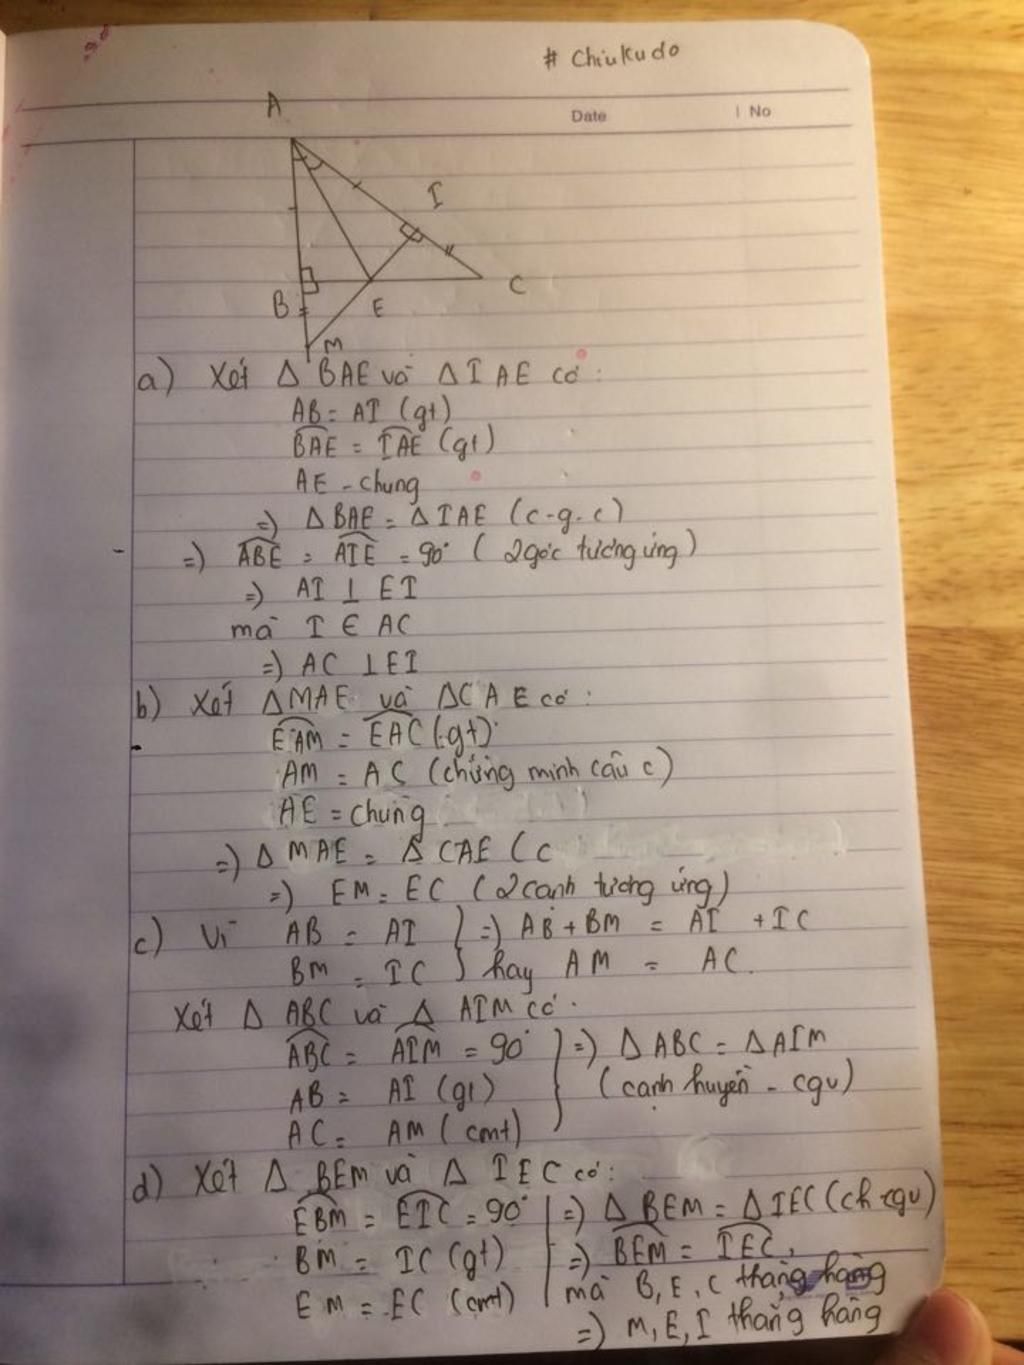 # Chiukudo
Date | No
A
I
C
B
E
M
a) Xét Δ BAE và Δ IAE có :
AB = AI (gt)
BAE = IAE (gt)
AE - chung
=) Δ BAE = Δ IAE (c-g.c)
=) ABE = AIE = 90° ( 2 góc tương ứng )
=) AI ⊥ EI
mà I ∈ AC
=) AC ⊥ EI
b) Xét ΔMAE và ΔCAE có :
EAM = EAC (gt)
AM = AC (chứng minh câu c)
AE = chung
=) Δ MAE = Δ CAE (c
=) EM = EC (2 cạnh tương ứng)
c) Vì AB = AI } =) AB + BM = AI + IC
BM = IC } hay AM = AC.
Xét Δ ABC và Δ AIM có :
ABC = AIM = 90° } =) Δ ABC = Δ AIM
AB = AI (gt) (cạnh huyền - cgv)
AC = AM ( cmt)
d) Xét Δ BEM và Δ IEC có :
EBM = EIC = 90° | =) Δ BEM = Δ IEC (ch-cgv)
BM = IC (gt) =) BEM = IEC,
EM = EC (cmt) mà B, E, C thẳng hàng
=) M, E, I thẳng hàng